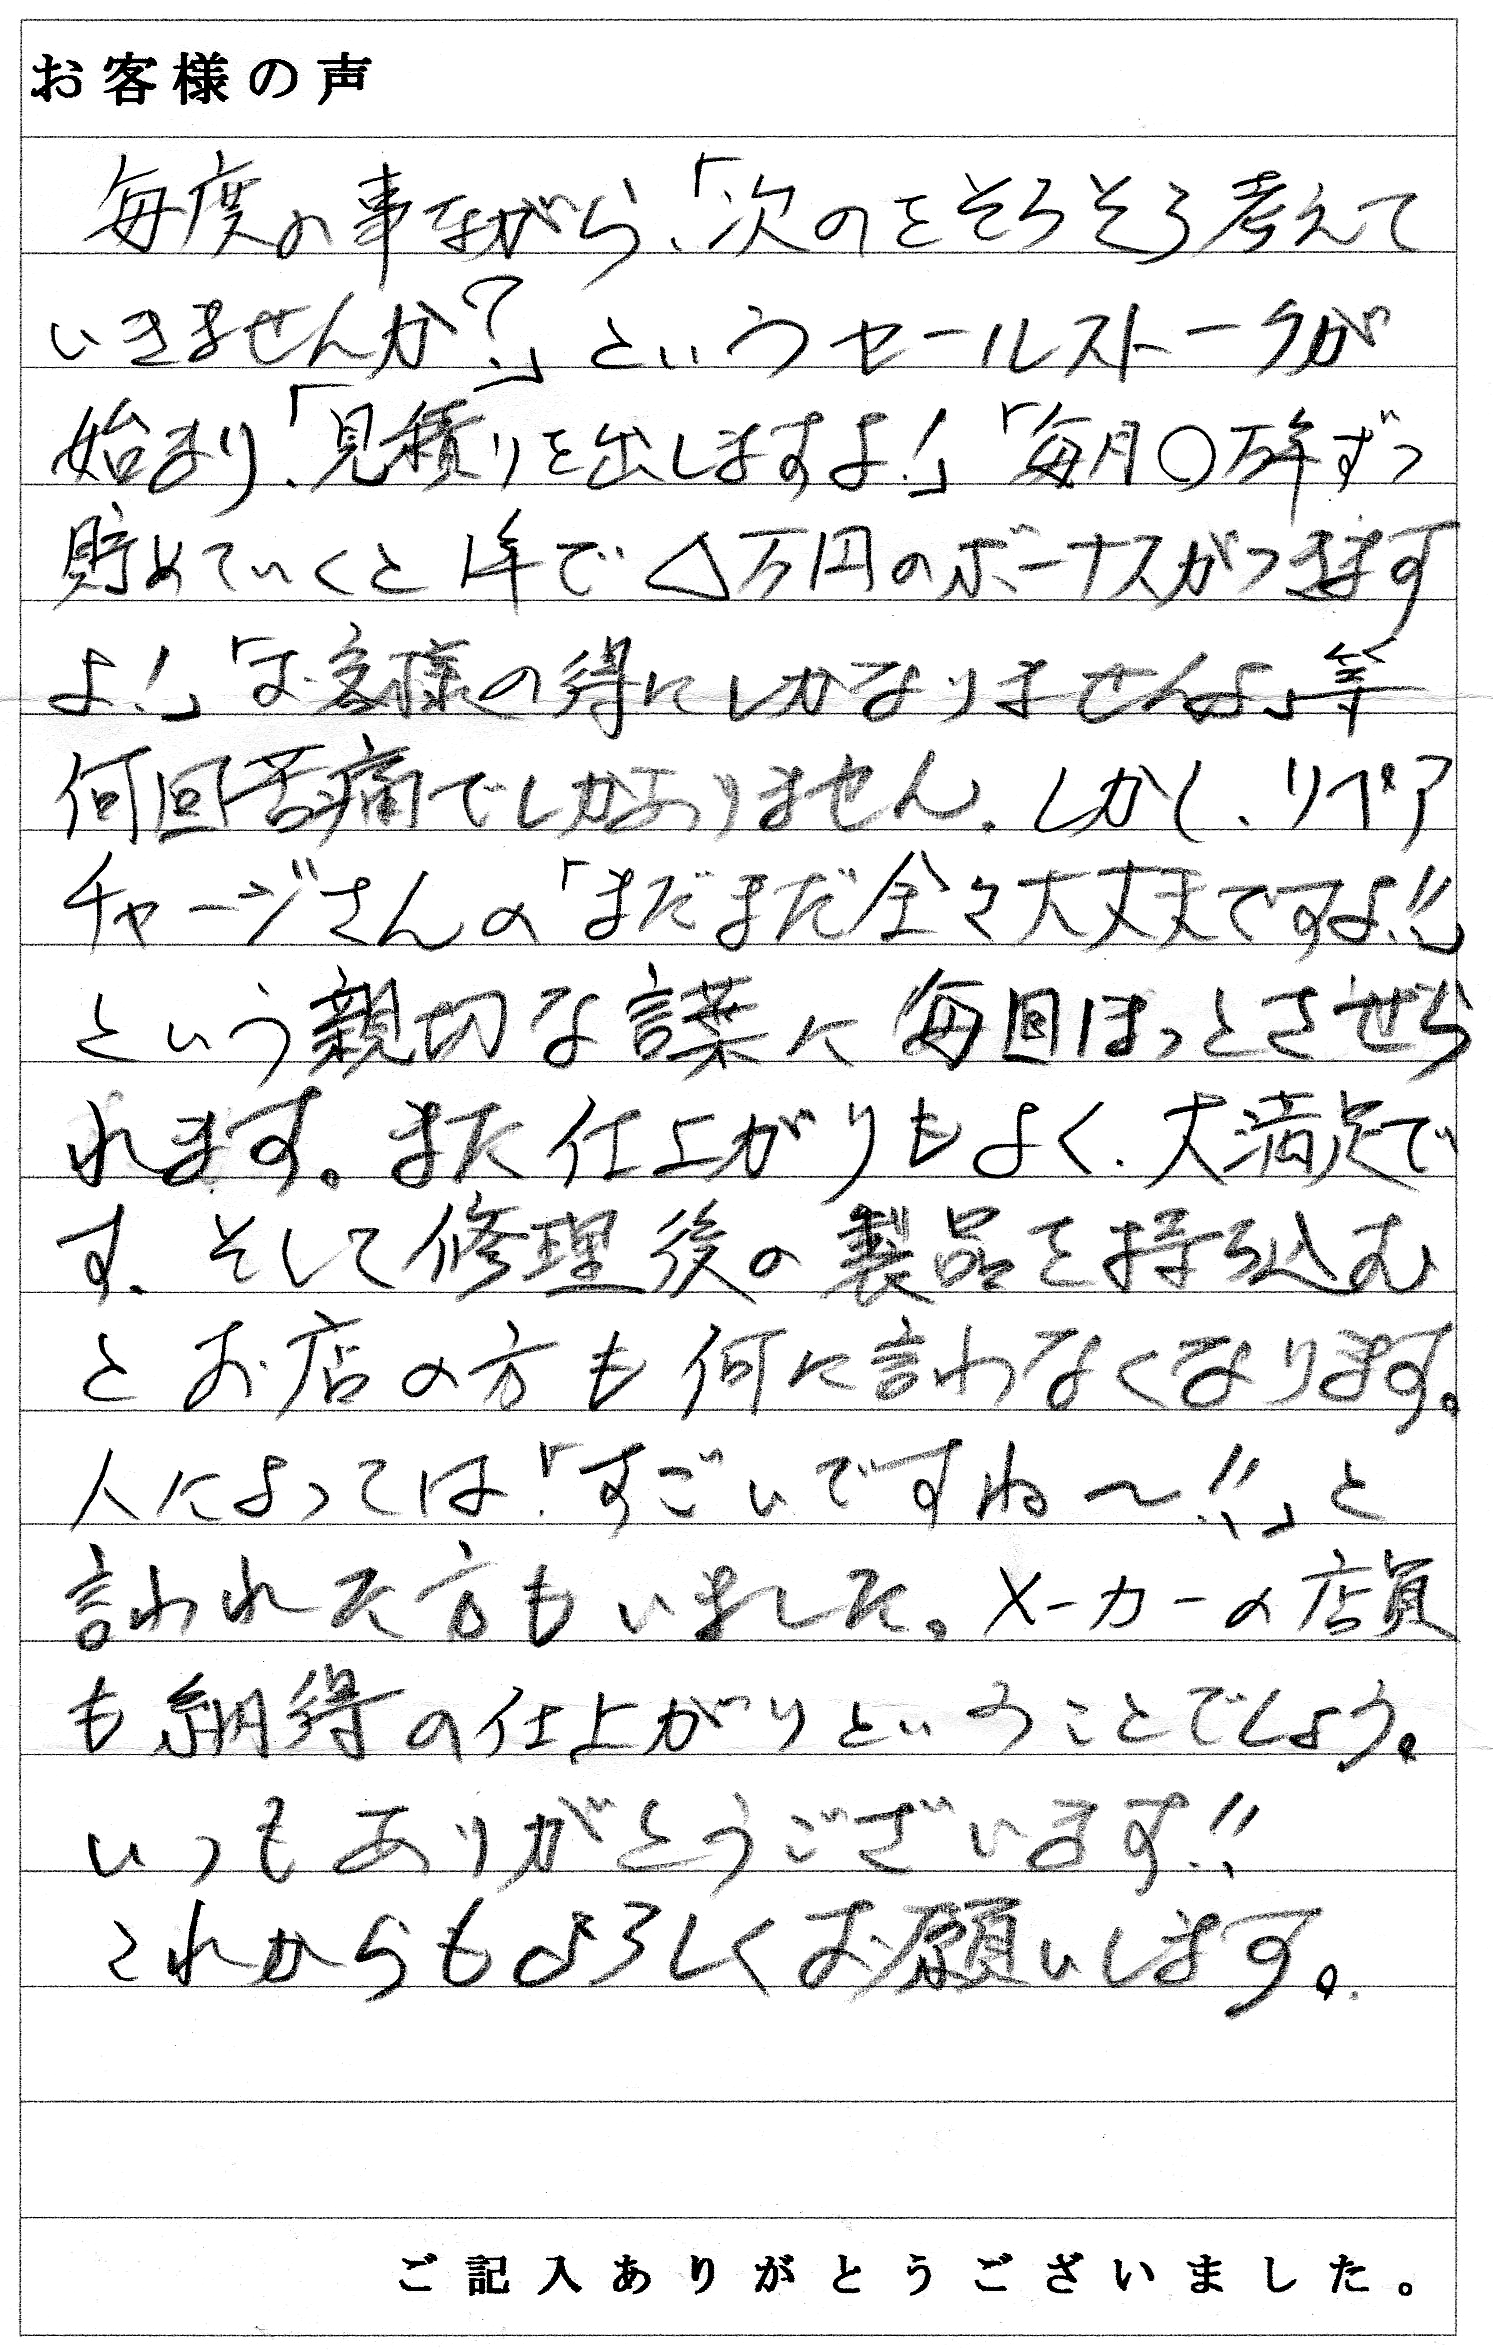 お客様の声
毎度の事ながら、「次のをそろそろ考えて
いきませんか?」というセールストークが
始まり、「見積りを出しますよ!」「毎月〇万年ずつ
貯めていくと1年で△万円のボーナスがつきます
よ!」「お客様の得にしかなりませんよ」等
何回苦痛でしかありません。しかし、リペア
チャージさんの「まだまだ全々大丈夫ですよ!!」
という親切な言葉に毎回ほっとさせら
れます。また仕上がりもよく、大満足で
す。そして修理後の製品を持ち込む
とお店の方も何に言わなくなります。
人によっては「すごいですね〜!!」と
言われた方もいました。メーカーの店員
も納得の仕上がりということでしょう。
いつもありがとうございます!!
これからもよろしくお願いします。
ご記入ありがとうございました。